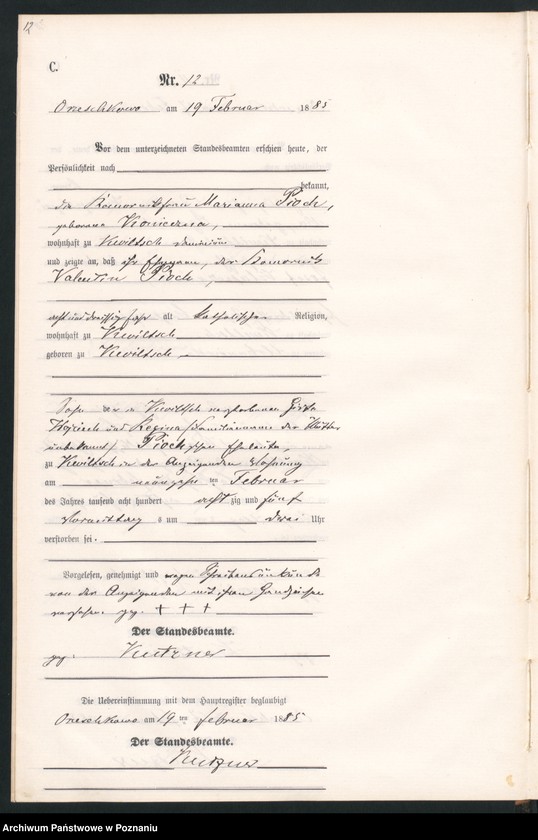 12
C.
Nr. 12
Orzeschkowo am 19 Februar 1885
Vor dem unterzeichneten Standesbeamten erschien heute, der
Persönlichkeit nach
bekannt,
die Komornikfrau Marianna Pioch,
geborene Konieczna,
wohnhaft zu Kwiltsch Dominium
und zeigte an, daß ihr Ehemann, der Komornik
Valentin Pioch,
acht und dreissig Jahr alt katholischer Religion,
wohnhaft zu Kwiltsch
geboren zu Kwiltsch
Sohn der in Kwiltsch verstorbenen
Wojciech und Regina (Familienname der Mutter
unbekannt) Piochschen Eheleute,
zu Kwiltsch in der Anzeigenden Wohnung
am neunzehnten Februar
des Jahres tausend acht hundert achtzig und fünf
Vormittag s um drei Uhr
verstorben sei.
Vorgelesen, genehmigt und wegen Schreibensunkunde
von der Anzeigenden mit ihren Handzeichen
versehen. gez. + + +
Der Standesbeamte.
gez. Kutzner
Die Uebereinstimmung mit dem Hauptregister beglaubigt
Orzeschkowo am 19 ten Februar 1885
Der Standesbeamte.
Kutzner
Archiwum Państwowe w Poznaniu